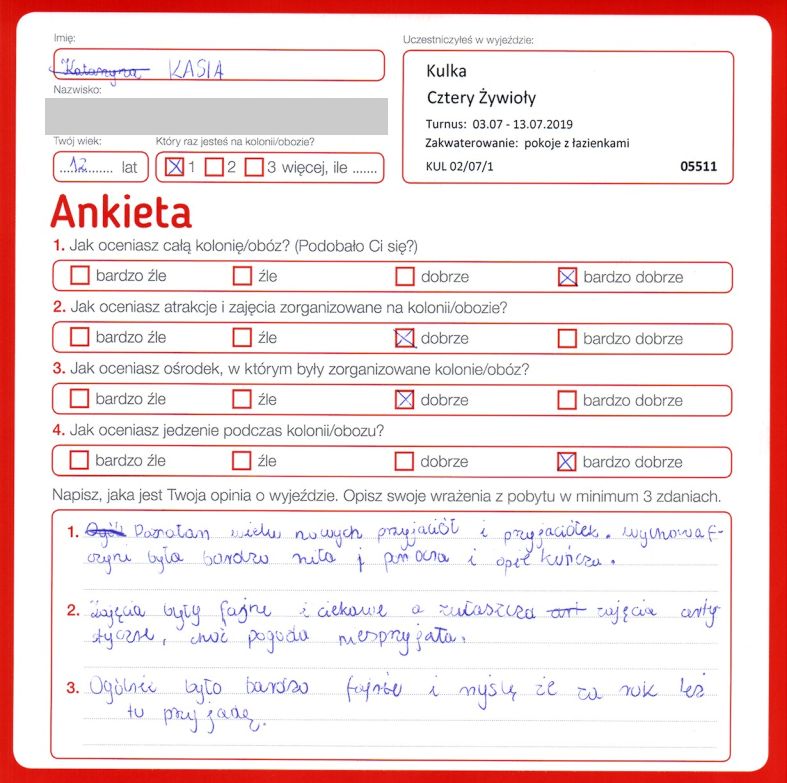 Imię:
Katarzyna KASIA
Nazwisko:
Twój wiek:
12 lat
Który raz jesteś na kolonii/obozie?
1 2 3 więcej, ile .......
Uczestniczyłeś w wyjeździe:
Kulka
Cztery Żywioły
Turnus: 03.07 - 13.07.2019
Zakwaterowanie: pokoje z łazienkami
KUL 02/07/1 05511
Ankieta
1. Jak oceniasz całą kolonię/obóz? (Podobało Ci się?)
bardzo źle źle dobrze bardzo dobrze
2. Jak oceniasz atrakcje i zajęcia zorganizowane na kolonii/obozie?
bardzo źle źle dobrze bardzo dobrze
3. Jak oceniasz ośrodek, w którym były zorganizowane kolonie/obóz?
bardzo źle źle dobrze bardzo dobrze
4. Jak oceniasz jedzenie podczas kolonii/obozu?
bardzo źle źle dobrze bardzo dobrze
Napisz, jaka jest Twoja opinia o wyjeździe. Opisz swoje wrażenia z pobytu w minimum 3 zdaniach.
1. Poznałam wielu nowych przyjaciół i przyjaciółek. wychowaw-
czyni była bardzo miła i pomocna i opiekuńcza.
2. Zajęcia były fajne i ciekawe a zwłaszcza art zajęcia arty
styczne, choć pogoda niesprzyjała.
3. Ogólnie było bardzo fajnie i myślę że za rok też
tu przyjadę.